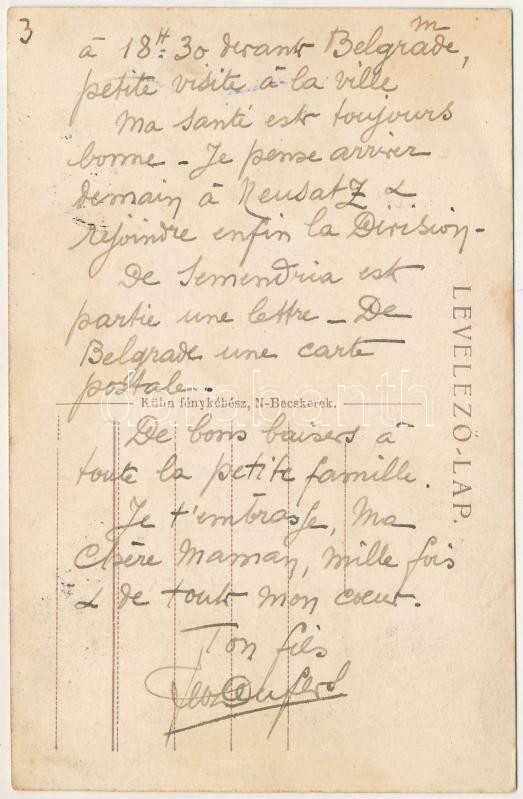 3
à 18H 30 devant Belgrade,
petite visite à la ville
Ma santé est toujours
bonne - Je pense arriver
demain à Neusatz &
rejoindre enfin la Division -
De Semendria est
partie une lettre - De
Belgrade une carte
postale -
Kühn fénykébész, N-Becskerek.
De bons baisers à
toute la petite famille.
Je t'embrasse, Ma
Chère Maman, mille fois
& de tout mon coeur.
Ton fils
LEVELEZŐ-LAP.
darabanth